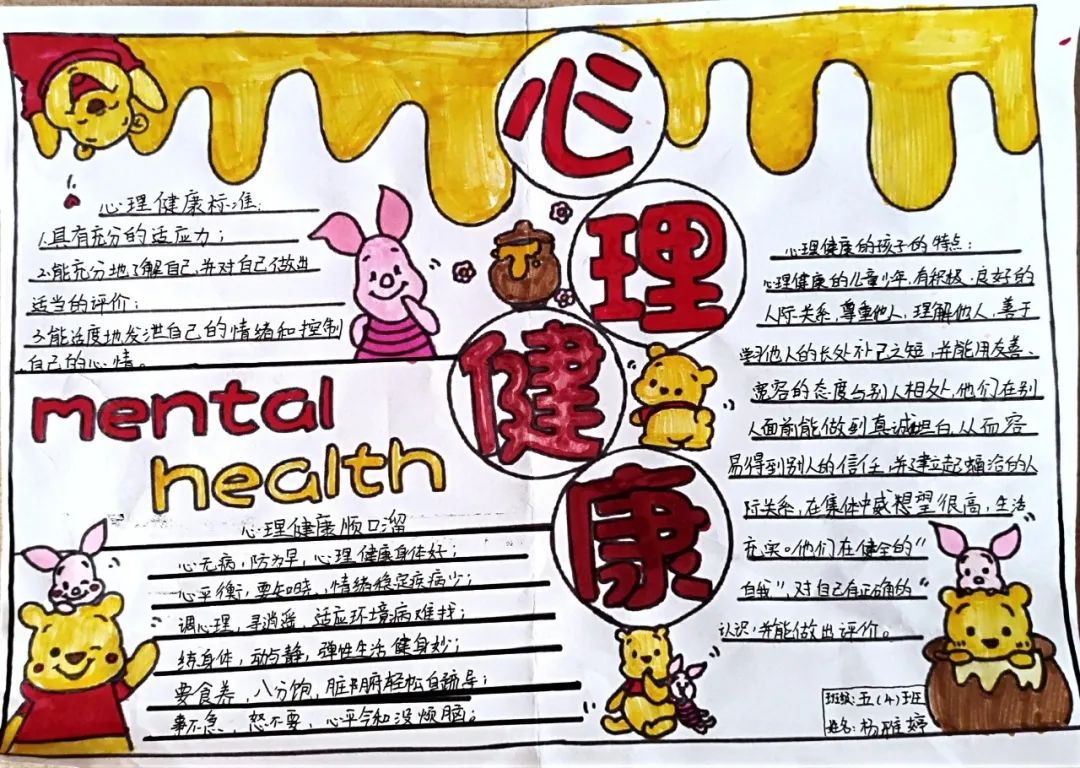 心理健康
心理健康标准:
1.具有充分的适应力;
2.能充分地了解自己,并对自己做出
适当的评价;
3.能适度地发泄自己的情绪和控制
自己的心情。
mental
health
心理健康顺口溜
心无病,防为早,心理健康身体好;
心平衡,要知晓,情绪稳定疾病少;
调心理,寻逍遥,适应环境病难找;
练身体,动与静,弹性生活健身妙;
要食养,八分饱,脏腑轻松自疏导;
事不急,怒不要,心平气和没烦脑;
心理健康的孩子的特点:
心理健康的儿童少年,有积极、良好的
人际关系,尊重他人,理解他人,善于
学习他人的长处补己之短,并能用友善、
宽容的态度与别人相处,他们在别
人面前能做到真诚坦白,从而容
易得到别人的信任,并建立起融洽的人
际关系,在集体中威望很高,生活
充实。他们在健全的“
自我”,对自己有正确的
认识,并能做出评价。
班级:五(4)班
姓名:杨雅婷